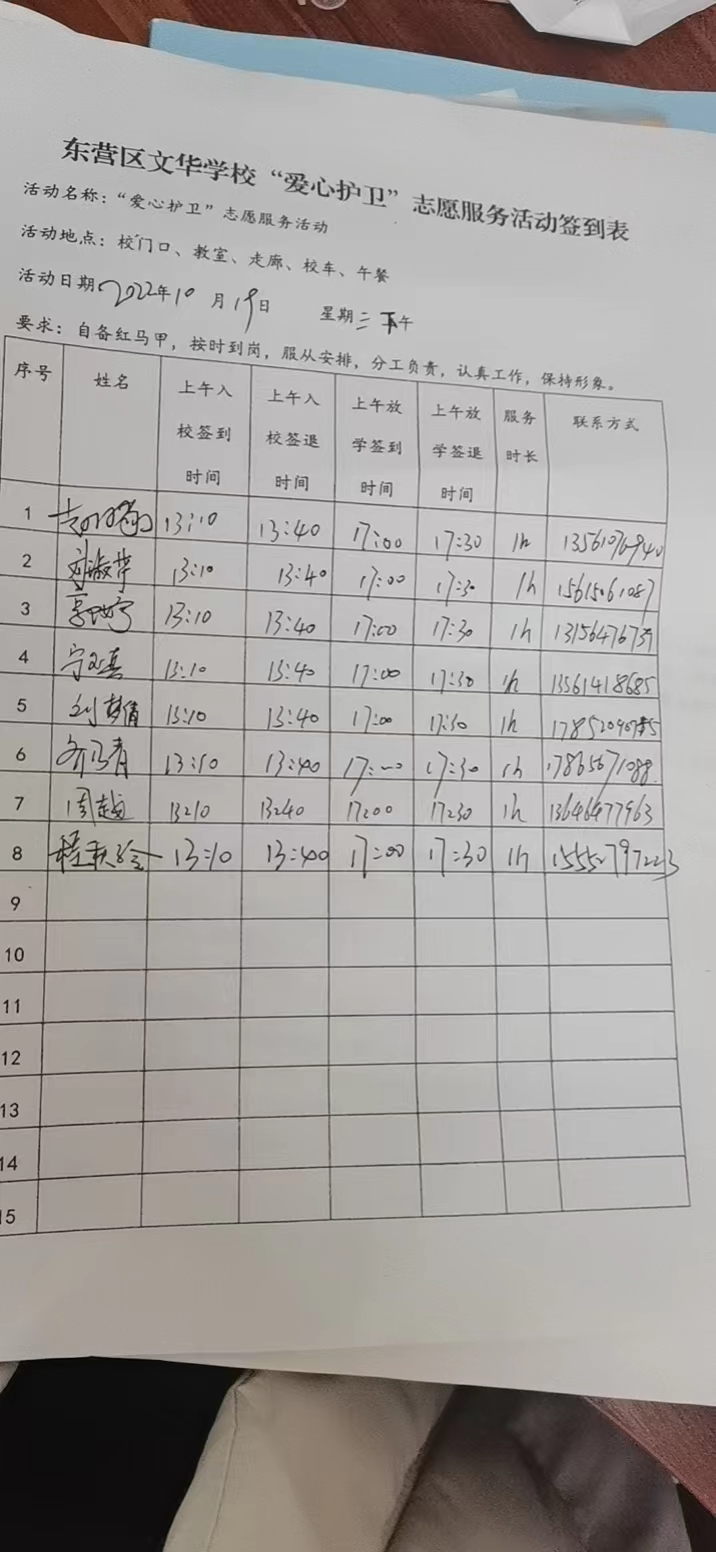 东营区文华学校“爱心护卫”志愿服务活动签到表
活动名称：“爱心护卫”志愿服务活动
活动地点：校门口、教室、走廊、校车、午餐
活动日期：2022年10月19日 星期三 下午
要求：自备红马甲，按时到岗，服从安排，分工负责，认真工作，保持形象。
序号 姓名 上午入校签到时间 上午入校签退时间 上午放学签到时间 上午放学签退时间 服务时长 联系方式
1 13:10 13:40 17:00 17:30 1h 13561076940
2 刘淑萍 13:10 13:40 17:00 17:30 1h 15615061087
3 13:10 13:40 17:00 17:30 1h
4 13:10 13:40 17:00 17:30 1h 13561418685
5 刘梦倩 13:10 13:40 17:00 17:30 1h
6 13:10 13:40 17:00 17:30 1h 17865671088
7 周越 13:10 13:40 17:00 17:30 1h 13646477963
8 13:10 13:40 17:00 17:30 1h
9
10
11
12
13
14
15